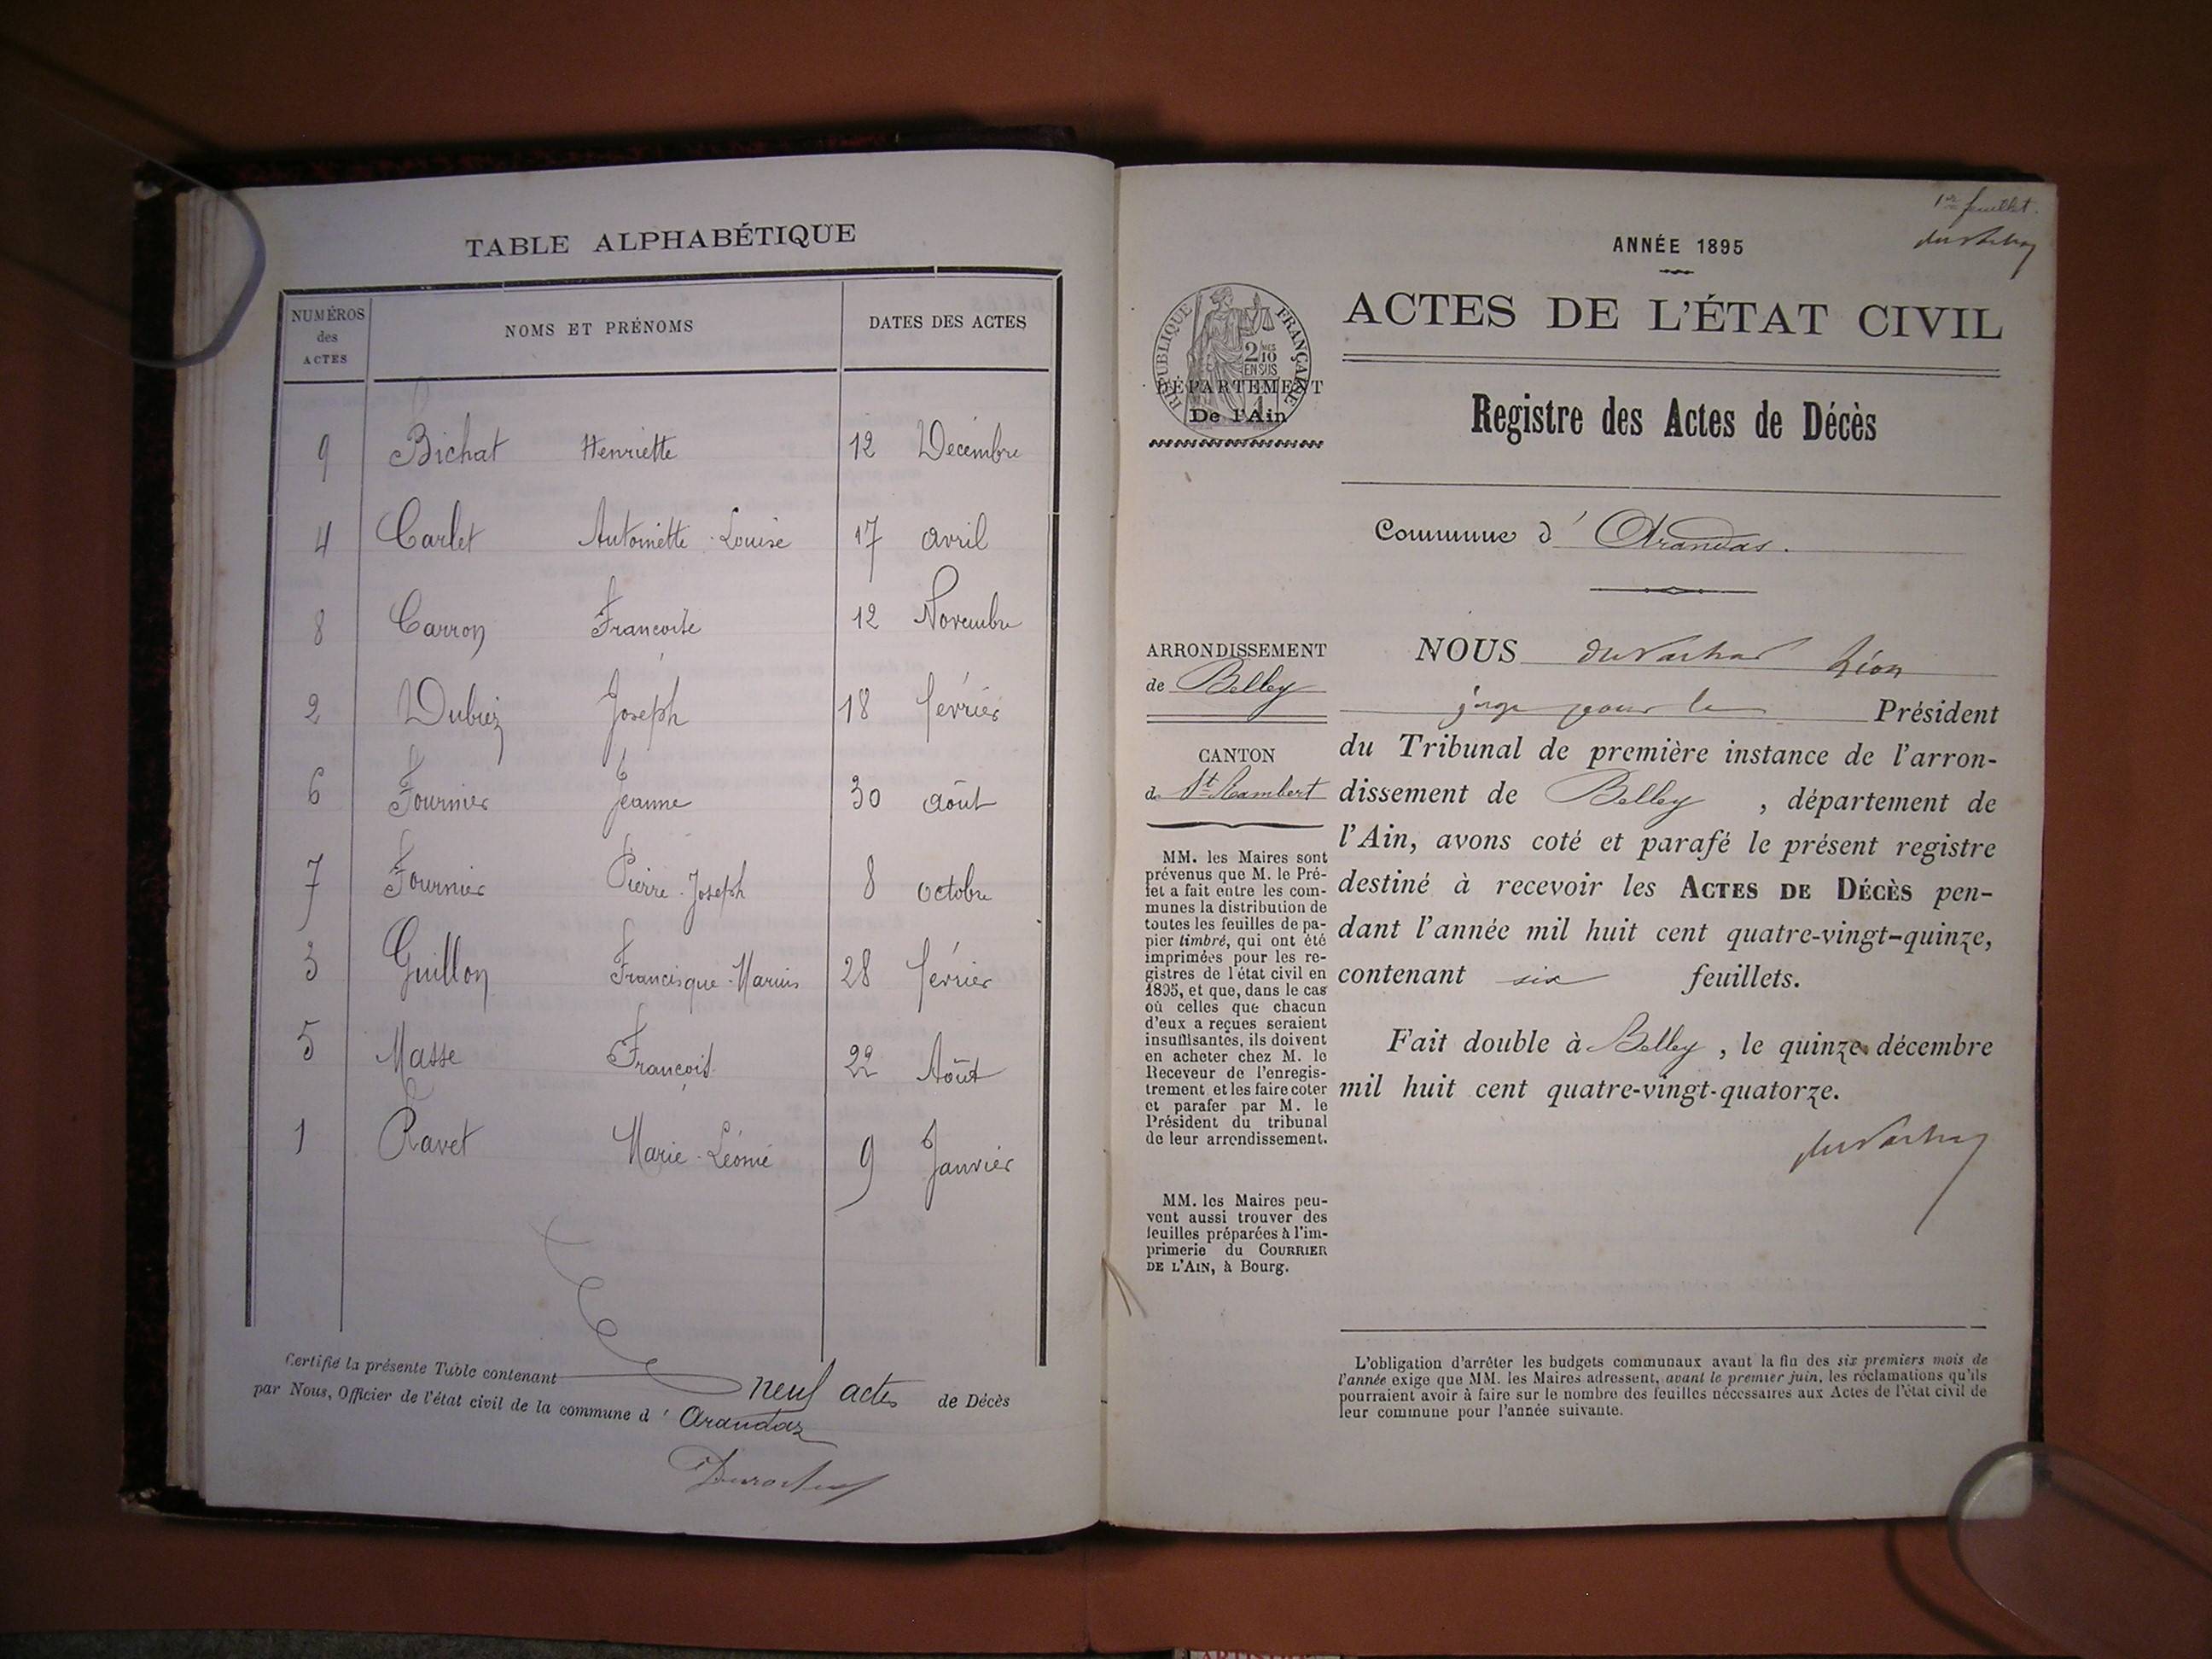 TABLE ALPHABÉTIQUE
NUMÉROS des ACTES
NOMS ET PRÉNOMS
DATES DES ACTES
9 Bichat Henriette 12 Décembre
4 Carlet Antoinette-Louise 17 avril
8 Carron Françoise 12 Novembre
2 Dubiez Joseph 18 février
6 Fournier Jeanne 30 août
7 Fournier Pierre-Joseph 8 octobre
3 Guillon Francisque-Marius 28 février
5 Masse François 22 Août
1 Ravet Marie-Léonie 9 Janvier
Certifié la présente Table contenant neuf actes de Décès
par Nous, Officier de l'état civil de la commune d' Arandas
1er feuillet.
ANNÉE 1895
ACTES DE L'ÉTAT CIVIL
RÉPUBLIQUE FRANÇAISE
2/10 MES
EN SUS
DÉPARTEMENT
De l'Ain
Registre des Actes de Décès
Commune d' Arandas.
ARRONDISSEMENT
de Belley
CANTON
de St Rambert
MM. les Maires sont
prévenus que M. le Pré-
fet a fait entre les com-
munes la distribution de
toutes les feuilles de pa-
pier timbré, qui ont été
imprimées pour les re-
gistres de l'état civil en
1895, et que, dans le cas
où celles que chacun
d'eux a reçues seraient
insuffisantes, ils doivent
en acheter chez M. le
Receveur de l'enregis-
trement et les faire coter
et parafer par M. le
Président du tribunal
de leur arrondissement.
MM. les Maires peu-
vent aussi trouver des
feuilles préparées à l'im-
primerie du COURRIER
DE L'AIN, à Bourg.
NOUS Léon
juge pour le Président
du Tribunal de première instance de l'arron-
dissement de Belley, département de
l'Ain, avons coté et parafé le présent registre
destiné à recevoir les ACTES DE DÉCÈS pen-
dant l'année mil huit cent quatre-vingt-quinze,
contenant six feuillets.
Fait double à Belley, le quinze décembre
mil huit cent quatre-vingt-quatorze.
L'obligation d'arrêter les budgets communaux avant la fin des six premiers mois de
l'année exige que MM. les Maires adressent, avant le premier juin, les réclamations qu'ils
pourraient avoir à faire sur le nombre des feuilles nécessaires aux Actes de l'état civil de
leur commune pour l'année suivante.